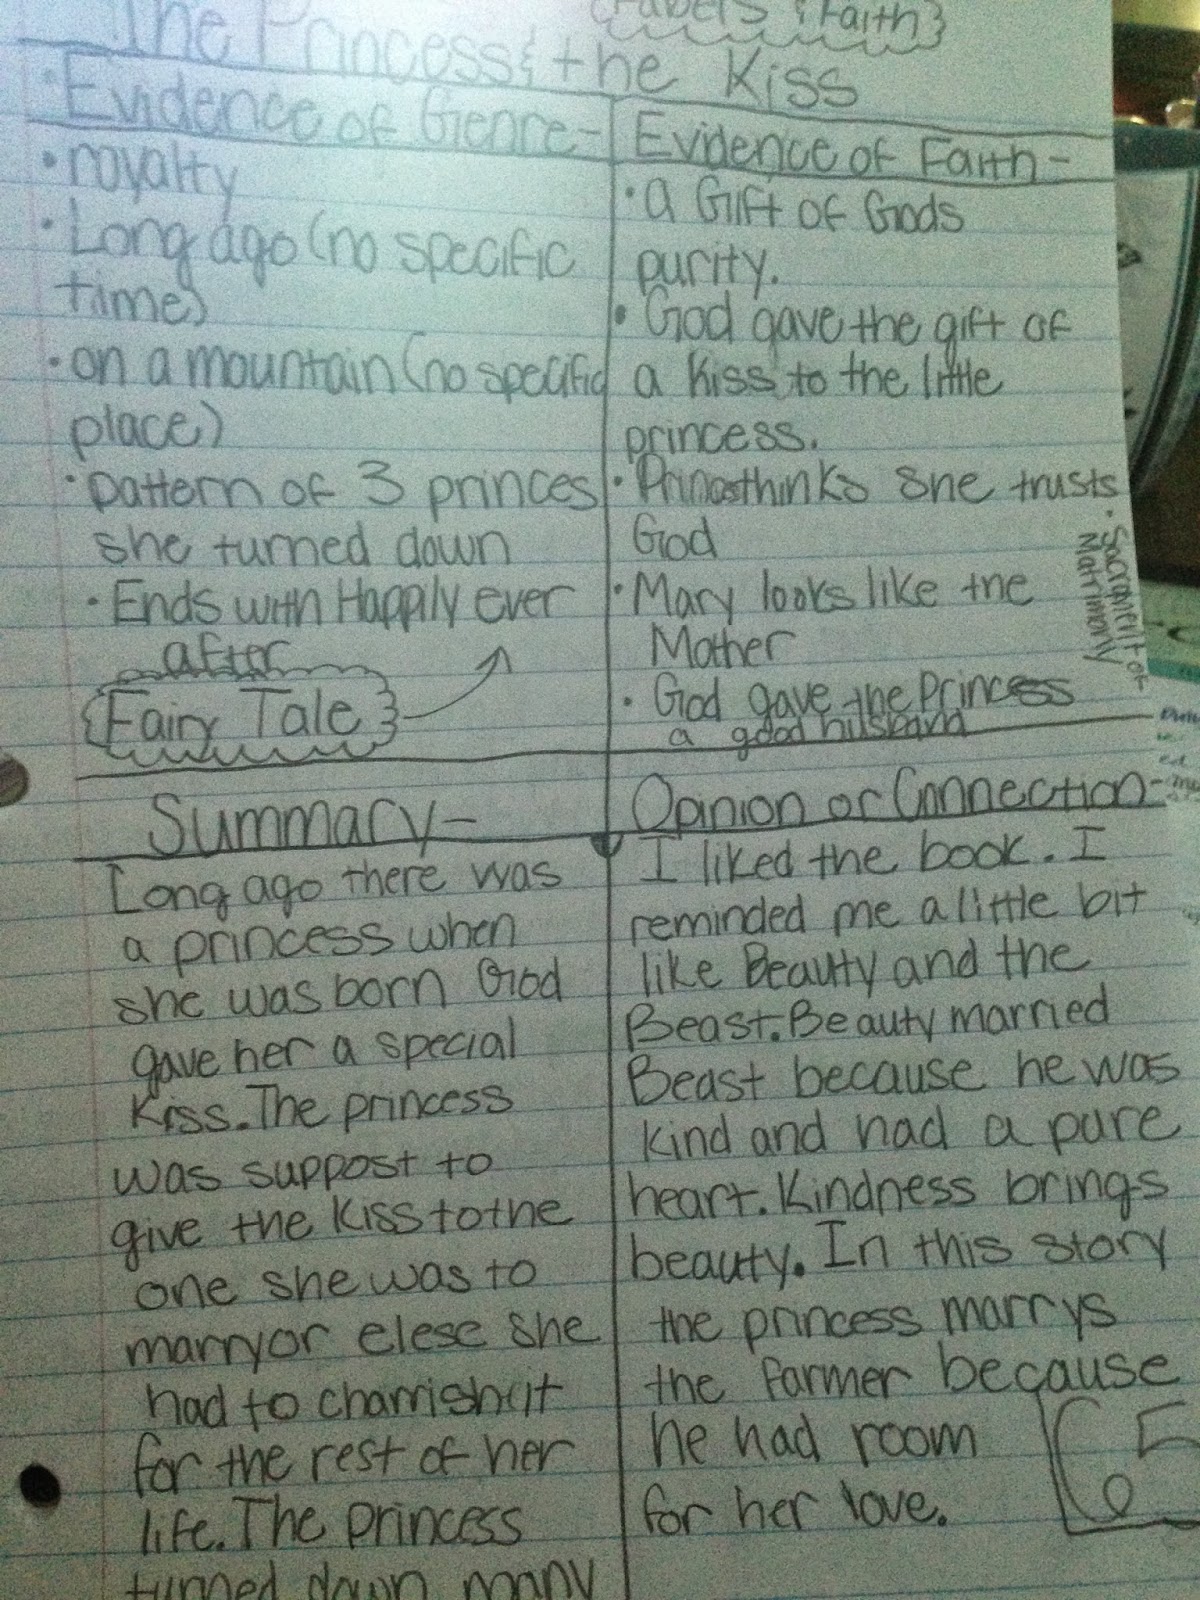 {Fabels & Faith}
The Princess & the Kiss
Evidence of Genre-
• royalty
• Long ago (no specific
time)
• on a mountain (no specific
place)
• pattern of 3 princes
she turned down
• Ends with Happily ever
after
{Fairy Tale}
Evidence of Faith-
• a Gift of Gods
purity.
• God gave the gift of
a Kiss to the little
princess.
• thinks she trusts
God
• Mary looks like the
Mother
• God gave the Princess
a good husband
• Sacrament of
Matrimony
Summary-
Long ago there was
a princess when
she was born God
gave her a special
Kiss. The princess
was suppost to
give the Kiss to the
one she was to
marry or elese she
had to charrish it
for the rest of her
life. The Princess
turned down many
Opinion or Connection-
I liked the book. I
reminded me a little bit
like Beauty and the
Beast. Beauty married
Beast because he was
kind and had a pure
heart. Kindness brings
beauty. In this story
the princess marrys
the farmer because
he had room
for her love.
65